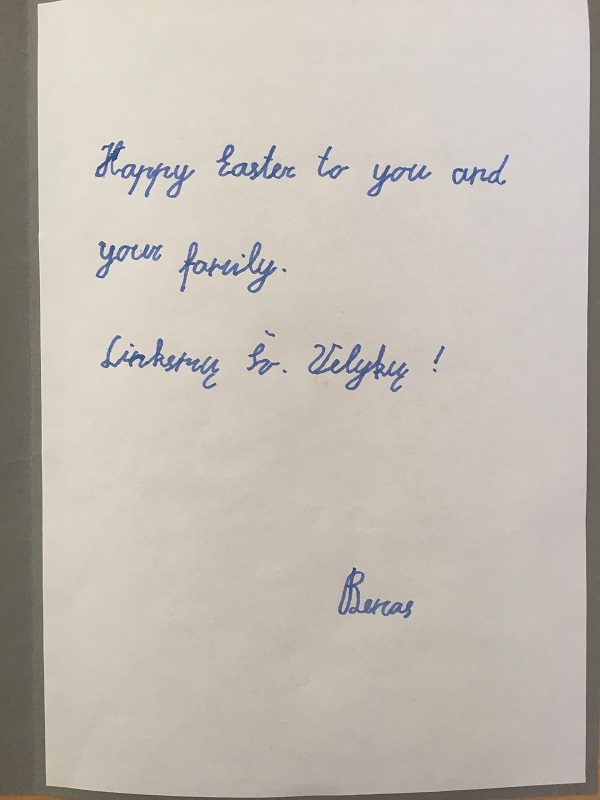 Happy Easter to you and
your family.
Linksmų Šv. Velykų !
Benas